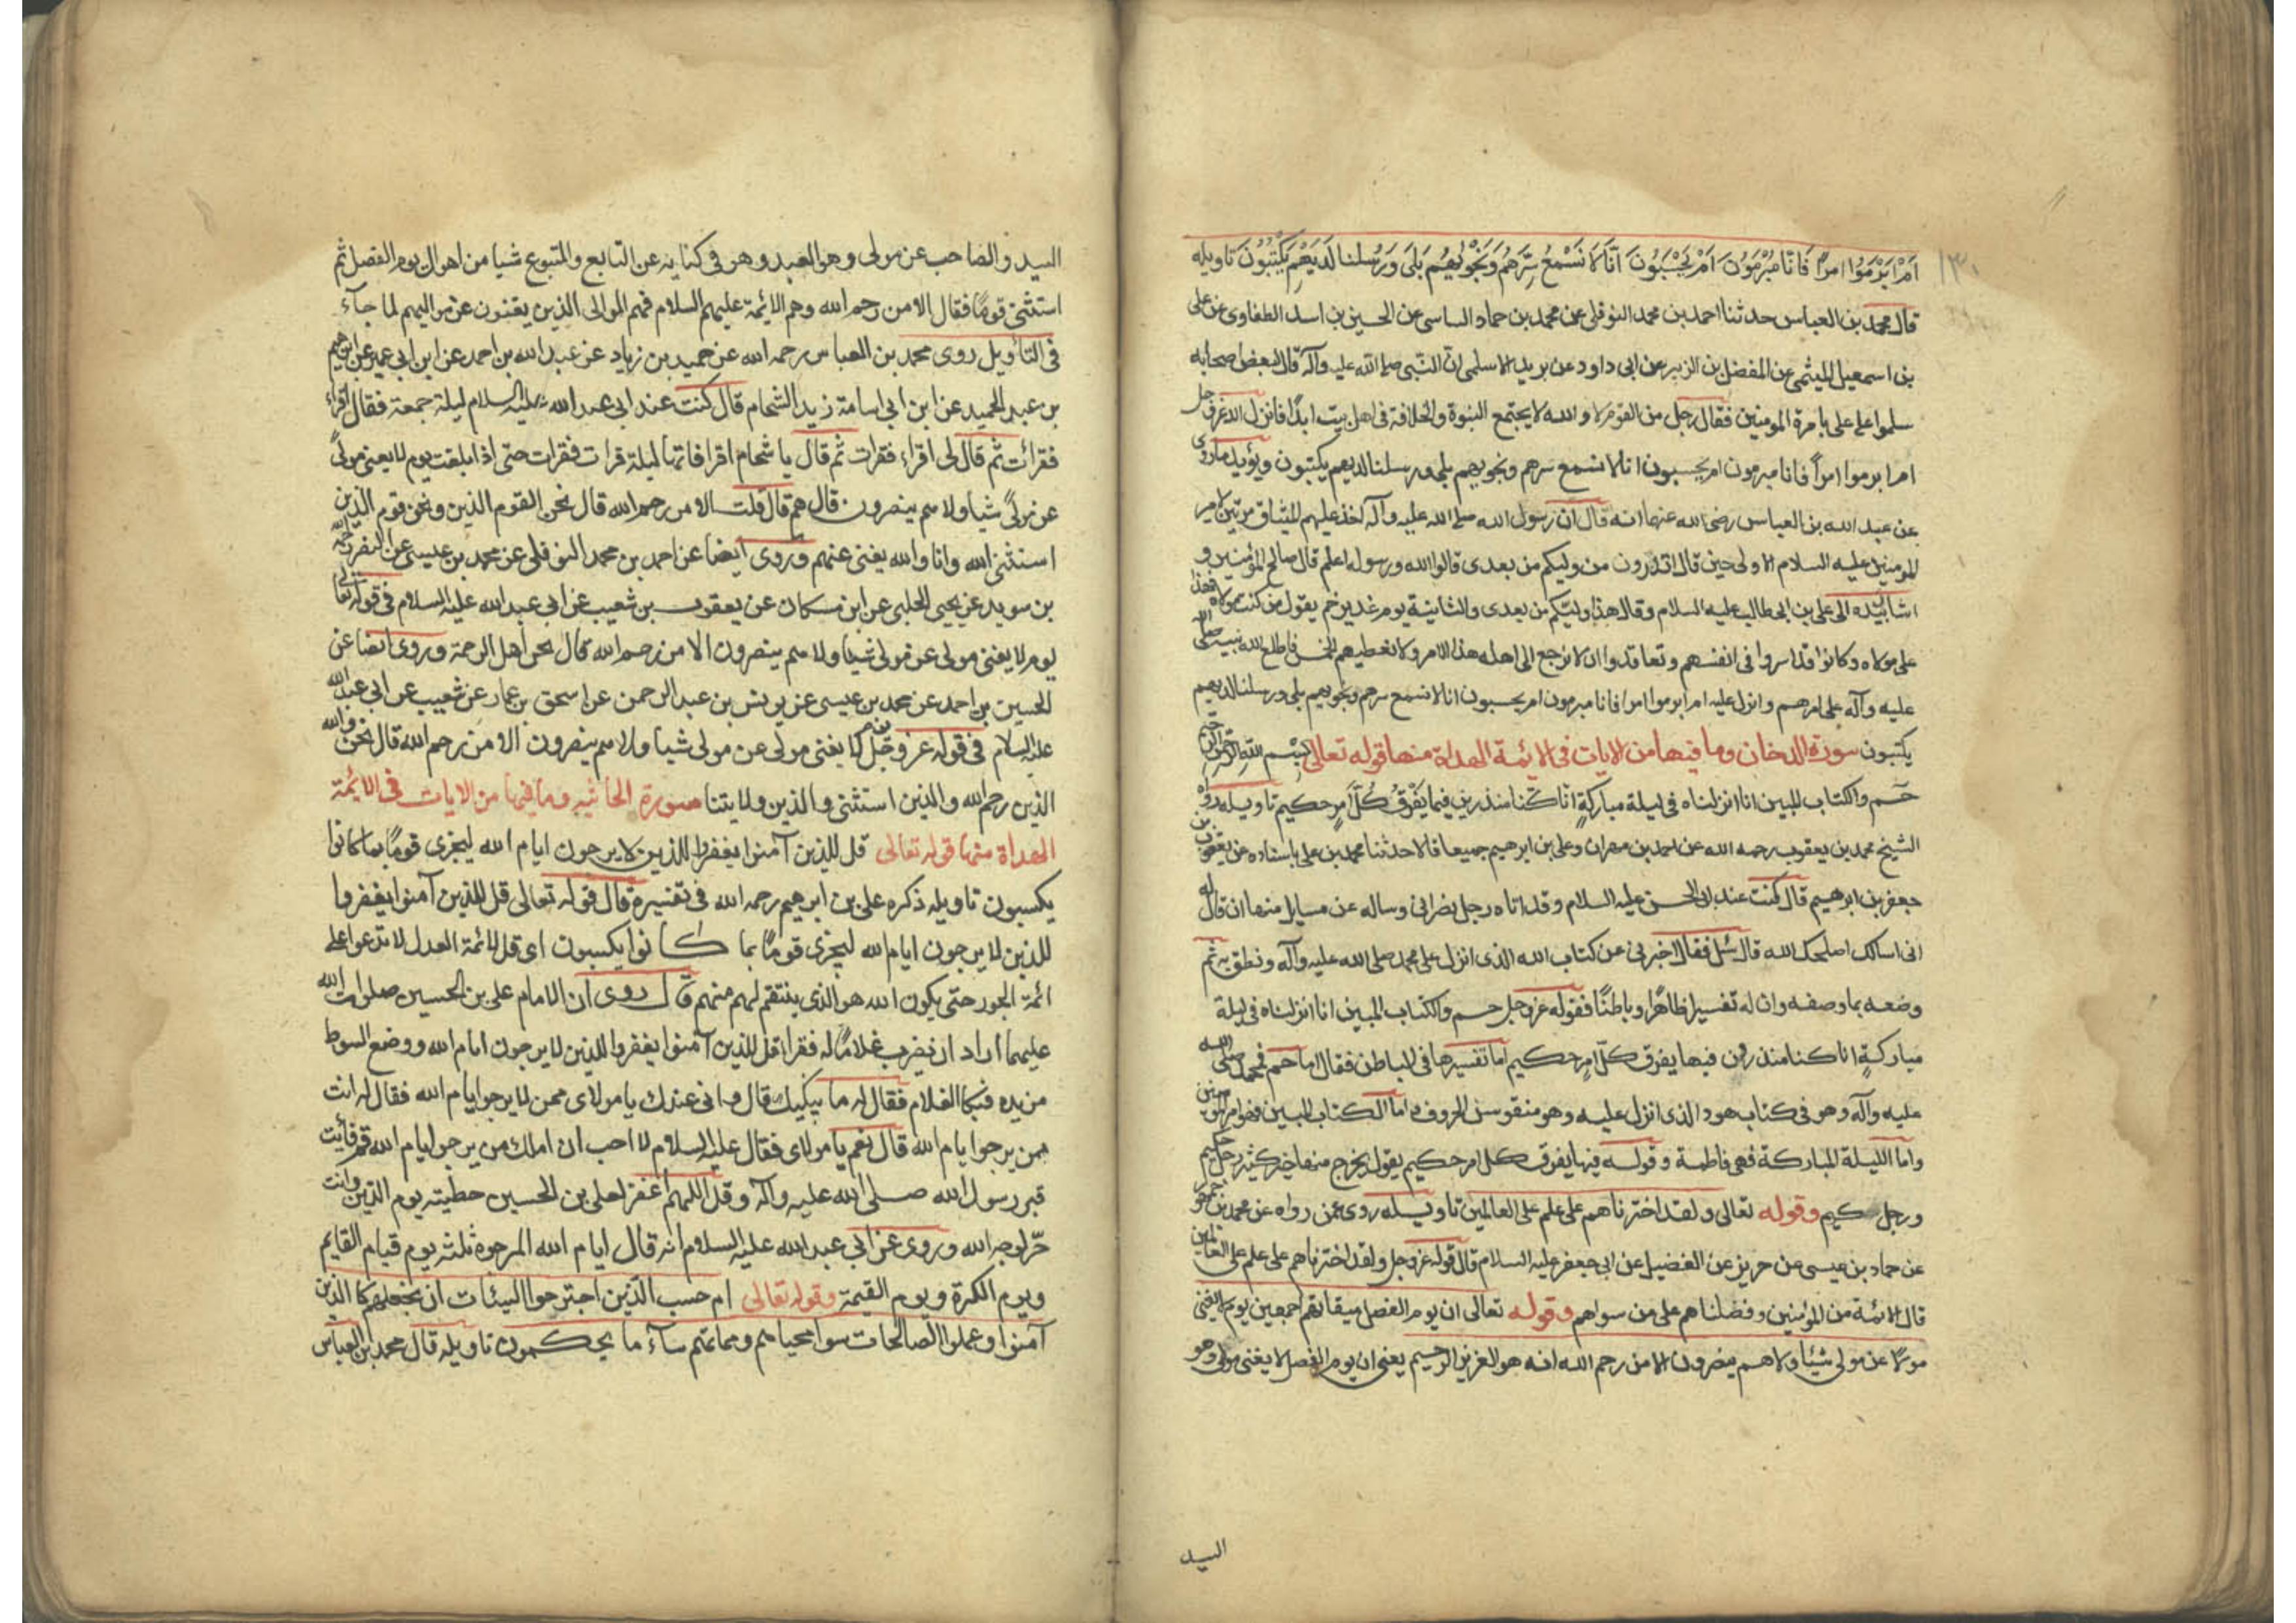 اَمْ اَبْرَمُوْا امراً فَانّا مُبْرِمُوُنَ اَمْ يَحْسَبُونَ اَنّا لَا نَسْمَعُ سِرَّهُمْ وَنَجْوٰيهُمْ بَلَى وَرُسُلنا لَدَيْهِمْ يَكْتُبُوُنَ تاويله
قال محمد بن العباس حدثنا احمد بن محمد النوفلى عن محمد بن حماد الساسى عن الحسين بن اسد الطفاوى عن على
بن اسمعيل الميثمى عن المفضل بن الزبير عن ابى داود عن بريد الاسلمى انّ النّبى صلى الله عليه وآله قال لبعض اصحابه
سلموا على على بامرة المومنين فقال رجل من القوم لا والله لا يجتمع النبوة والخلافة فى اهل بيت ابدًا فانزل الله عز وجل
ام ابرموا امراً فانا مبرمون ام يحسبون انا لا نسمع سرهم ونجويهم بلى ورسلنا لديهم يكتبون ويؤيد ما روى
عن عبد الله بن العباس رضى الله عنهما انه قال ان رسول الله صلى الله عليه وآله اخذ عليهم الميثاق مرتين لامير
المومنين عليه السلام الاولى حين قال اتدرون من وليكم من بعدى قالوا الله ورسوله اعلم قال صالح المؤمنين و
اشا بيده الى على بن ابى طالب عليه السلام وقال هذا وليّكم من بعدى والثانية يوم غدير خم يقول من كنت مولاه فهذا
على مولاه وكانوا قد اسروا فى انفسهم وتعاقدوا ان لا نرجع الى اهله هذا الامر ولا نعطيهم الخمس فاطلع الله نبيه صلى الله
عليه وآله على امرهم وانزل عليه ام ابرموا امرا فانا مبرمون ام يحسبون انا لا نسمع سرهم ونجويهم بلى ورسلنا لديهم
يكتبون سورة الدخان وما فيها من الايات فى الائمة الهداة منها قوله تعالى بسم الله الرحمن الرحيم
حٓم والكتاب المبين انا انزلناه فى ليلة مباركةٍ انّا كنّا منذرين فيها يُفْرَقُ كُلّ امرٍ حكيم تاويله رواه
الشيخ محمد بن يعقوب رحمه الله عن احمد بن مهران وعلى بن ابرهيم جميعا قالا حدثنا محمد بن على باسناده عن يعقوب بن
جعفر بن ابرهيم قال كنت عند ابى الحسن عليه السلام وقد اتاه رجل نصرانى وساله عن مسايل منها ان قال له
انى اسالك اصلحك الله قال سَل فقال اخبرنى عن كتاب الله الذى انزل على محمد صلى الله عليه وآله ونطق به ثم
وضعه بما وصفه وان له تفسيرا ظاهرًا وباطنًا فقوله عز وجل حٓم والكتاب المبين انا انزلناه فى ليلة
مباركةٍ انا كنا منذرين فيها يفرق كلّ امرٍ حكيم اما تفسيرها فى الباطن فقال اما حم فمحمد صلى الله
عليه وآله وهو فى كتاب هود الذى انزل عليه وهو منقوس الحروف واما الكتاب المبين فهو امير المومنين
واما الليلة المباركة فهى فاطمة وقوله فيها يفرق كل امر حكيم يقول يخرج منها خير كثير رجل حكيم
ورجل حكيم وقوله تعالى ولقد اخترناهم على علم على العالمين تاويله روى عمن رواه عن محمد بن جمهور
عن حماد بن عيسى عن حريز عن الفضيل عن ابى جعفر عليه السلام قال قوله عز وجل ولقد اخترناهم على علم على العالمين
قال الائمة من المؤمنين وفضلناهم على من سواهم وقوله تعالى ان يوم الفصل ميقاتهم اجمعين يوم لا يغنى
مولا عن مولى شيئا ولا هم ينصرون الا من رحم الله انه هو العزيز الرحيم يعنى ان يوم الفصل لا يغنى مولى وهو
السيد
السيد والصاحب عن مولى وهو العبد وهو فى كنايه عن التابع والمتبوع شيا من اهوال يوم الفصل ثم
استثنى قومًا فقال الا من رحم الله وهم الائمة عليهم السلام فهم الموالى الذين يغنون عن مواليهم لما جآء
فى التأويل روى محمد بن العباس رحمه الله عن حميد بن زياد عن عبد الله بن احمد عن ابن ابى عمير عن ابرهيم
بن عبد الحميد عن ابن ابى اسامة زيد الشحام قال كنت عند ابى عبد الله عليه السلام ليلة جمعة فقال اقراء
فقرائت ثم قال لى اقراء فقرات ثم قال يا شحام اقرا فانها ليلة قرات فقرات حتى اذا بلغت يوم لا يغنى مولىً
عن مولىً شيا ولا هم ينصرون قال هم قال قلت الا من رحم الله قال نحن القوم الذين ونحن قوم الذين
استثنى الله وانا والله يغنى عنهم وروى ايضا عن احمد بن محمد النوفلى عن محمد بن عيسى عن النضر
بن سويد عن يحيى الحلبى عن ابن مسكان عن يعقوب بن شعيب عن ابى عبد الله عليه السلام فى قوله تعالى
يوم لا يغنى مولى عن مولى شيا ولا هم ينصرون الا من رحم الله قال نحن اهل الرحمة وروى ايضا عن
الحسين بن احمد عن محمد بن عيسى عن يونس بن عبد الرحمن عن اسحق بن عمار عن شعيب عن ابى عبد الله
عليه السلام فى قوله عز وجل يوم لا يغنى مولى عن مولى شيا ولا هم ينصرون الا من رحم الله قال نحن والله
الذين رحم الله والذين استثنى والذين ولايتنا سورة الجاثيه وما فيها من الايات فى الائمة
الهداة منها قوله تعالى قل للذين آمنوا يغفروا للذين لا يرجون ايام الله ليجزى قومًا بما كانوا
يكسبون تاويله ذكره على بن ابرهيم رحمه الله فى تفسيره قال قوله تعالى قل للذين آمنوا يغفروا
للذين لا يرجون ايام الله ليجزى قومًا بما كانوا يكسبون اى قل لائمة العدل لا تدعوا على
ائمة الجور حتى يكون الله هو الذى ينتقم لهم منهم قال روى ان الامام على بن الحسين صلوات الله
عليهما اراد ان يضرب غلامًا له فقرا قل للذين آمنوا يغفروا للذين لا يرجون ايام الله ووضع السوط
من يده فبكا الغلام فقال له ما يبكيك قال وانى عندك يا مولاى ممن لا يرجوا ايام الله فقال له انت
ممن يرجوا ايام الله قال نعم يا مولاى فقال عليه السلام لا احب ان املك من يرجوا ايام الله قم فأيت
قبر رسول الله صلى الله عليه وآله وقل اللهم اغفر لعلى بن الحسين خطيته يوم الدين وانت
حرّ لوجه الله وروى عن ابى عبد الله عليه السلام انه قال ايام الله المرجوة ثلثه يوم قيام القايم
ويوم الكرة ويوم القيمة وقوله تعالى ام حسب الذين اجترحوا السيئات ان نجعلهم كالذين
آمنوا وعملوا الصالحات سوا محياهم ومماتهم سآء ما يحكمون تاويله قال محمد بن العباس